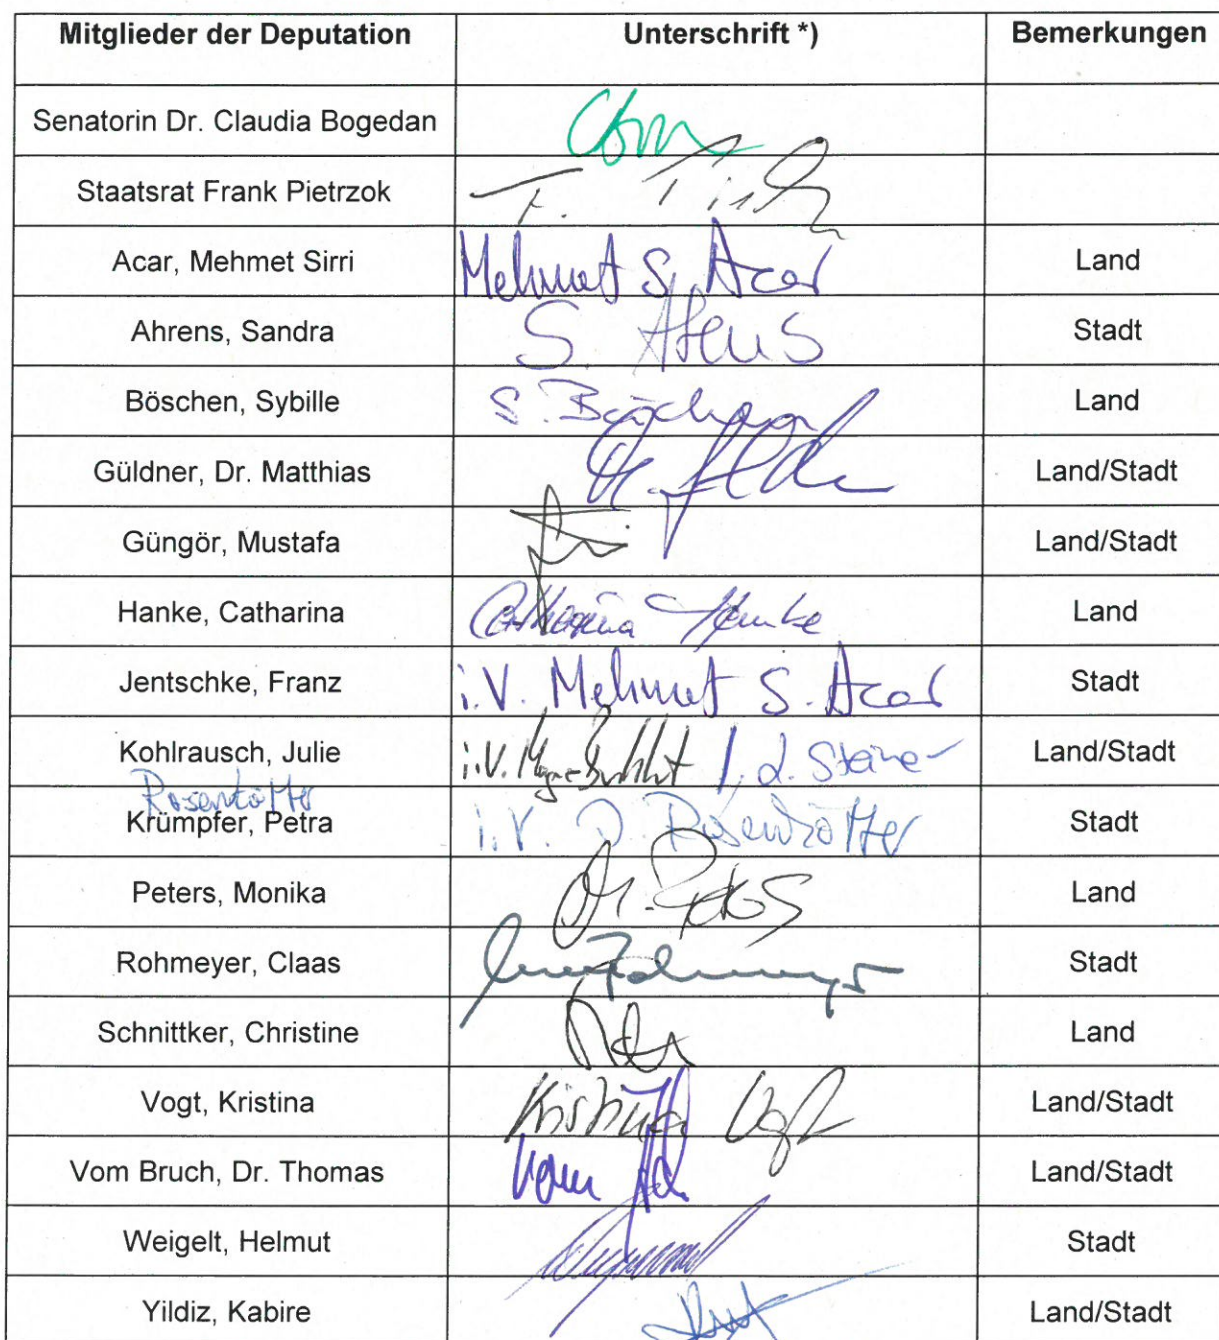 Mitglieder der Deputation Unterschrift *) Bemerkungen
Senatorin Dr. Claudia Bogedan
Staatsrat Frank Pietrzok F.
Acar, Mehmet Sirri Mehmet S. Acar Land
Ahrens, Sandra S. Ahrens Stadt
Böschen, Sybille S. Böschen Land
Güldner, Dr. Matthias Land/Stadt
Güngör, Mustafa Land/Stadt
Hanke, Catharina Catharina Hanke Land
Jentschke, Franz i.V. Mehmet S. Acar Stadt
Kohlrausch, Julie i.V. Steiner Land/Stadt
Rosenkötter
Krümpfer, Petra i.V. Rosenkötter Stadt
Peters, Monika M. Peters Land
Rohmeyer, Claas Stadt
Schnittker, Christine Land
Vogt, Kristina Kristina Vogt Land/Stadt
Vom Bruch, Dr. Thomas vom Land/Stadt
Weigelt, Helmut Stadt
Yildiz, Kabire Land/Stadt